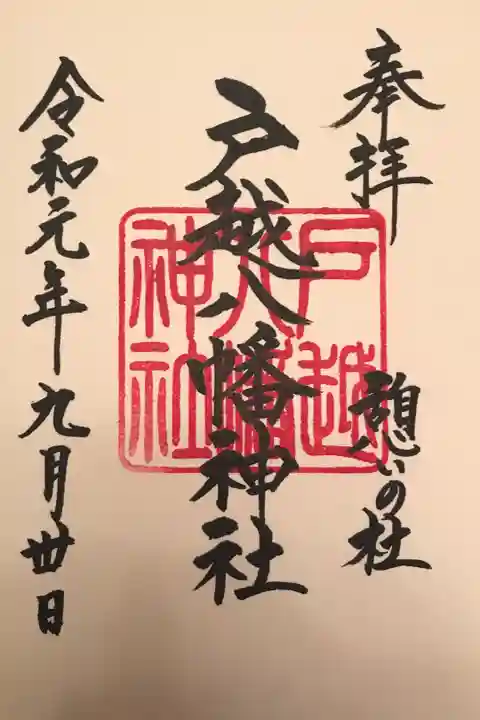 奉拝
憩いの杜
戸越八幡神社
戸越
八幡
神社
令和元年九月丗日